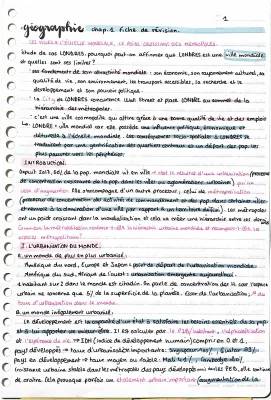 1
géographie chap. 1 fiche de révision.
LES VILLES À L'ÉCHELLE MONDIALE, LE POIDS CROISSANT DES MÉTROPOLES.
étude de cas LONDRES pourquoi peut-on affirmer que LONDRES est une ville mondiale
et quelles sont ses limites?
ses fondement de son attractivité mondiale : son économie, son rayonnement culturel, sa
qualité de vie, son environnement, les transport accessibles, la recherche et le
développement et son pouvoir politique.
La City de LONDRES concurrence Wall Street et place LONDRES au sommet de la
hiérarchie des métropoles.
c'est une ville cosmopolite qui attire grâce à une bonne qualité de vie et des emplois
LONDRES : ville mondial car elle possède une influence politique, économique et
culturelle à l'échelle mondiale.
traduisent par une gentrification question continues et un départ des pop. les
plus pauvres vers les périphéries.
INTRODUCTION.
Depuis 2007, 50% de la pop. mondiale vit en ville → c'est le résultat d'une urbanisation (processus
de concentration croissante de la pop. dans les villes ou agglomérations urbaines) qui ne
cesse d'augmenter. Elle s'accompagne d'un autre processus, celui de métropolisation
(processus de concentration des activités de commandement et des pop dans certaines villes
et renvoie à la domination d'une ville par rapport à un territoire donné). les métropoles
ont un poids croissant dans la mondialisation et cela va créer une hiérarchie entre ces dernières.
Comment la métropolisation renforce-t-elle la hiérarchie urbaine mondiale et recompose-t-elle les
espaces métropolitains?
I. L'URBANISATION DU MONDE.
A. un monde de plus en plus urbanisé.
Amérique du nord, Europe et Japon : point de départ de l'urbanisation mondiale.
Amérique du sud, Afrique de l'ouest : urbanisation émergente aujourd'hui.
1 habitant sur 2 dans le monde est citadin. On parle de concentration des
urbain ne
taux d'urbanisation dans le monde.
B. un monde inégalement urbanisé.
le développement est la capacité d'un état à satisfaire les besoins essentiels de sa pop
et à lui apporter un bien-être. Il est calculé par le PIB/habitant, l'alphabétisation
et l'espérance de vie → IDH (indice de développement humain) compris en 0 et 1.
pays développés → taux d'urbanisation importante: Singapour 100% / Qatar 99%
pays en développement → taux moyen ou faible: Mali 41% / Cambodge
croissance urbaine stable dans les métropoles des pays développés mais les PED, elle continue
de croître. Cela provoque parfois un étalement urbain important (augmentation de la